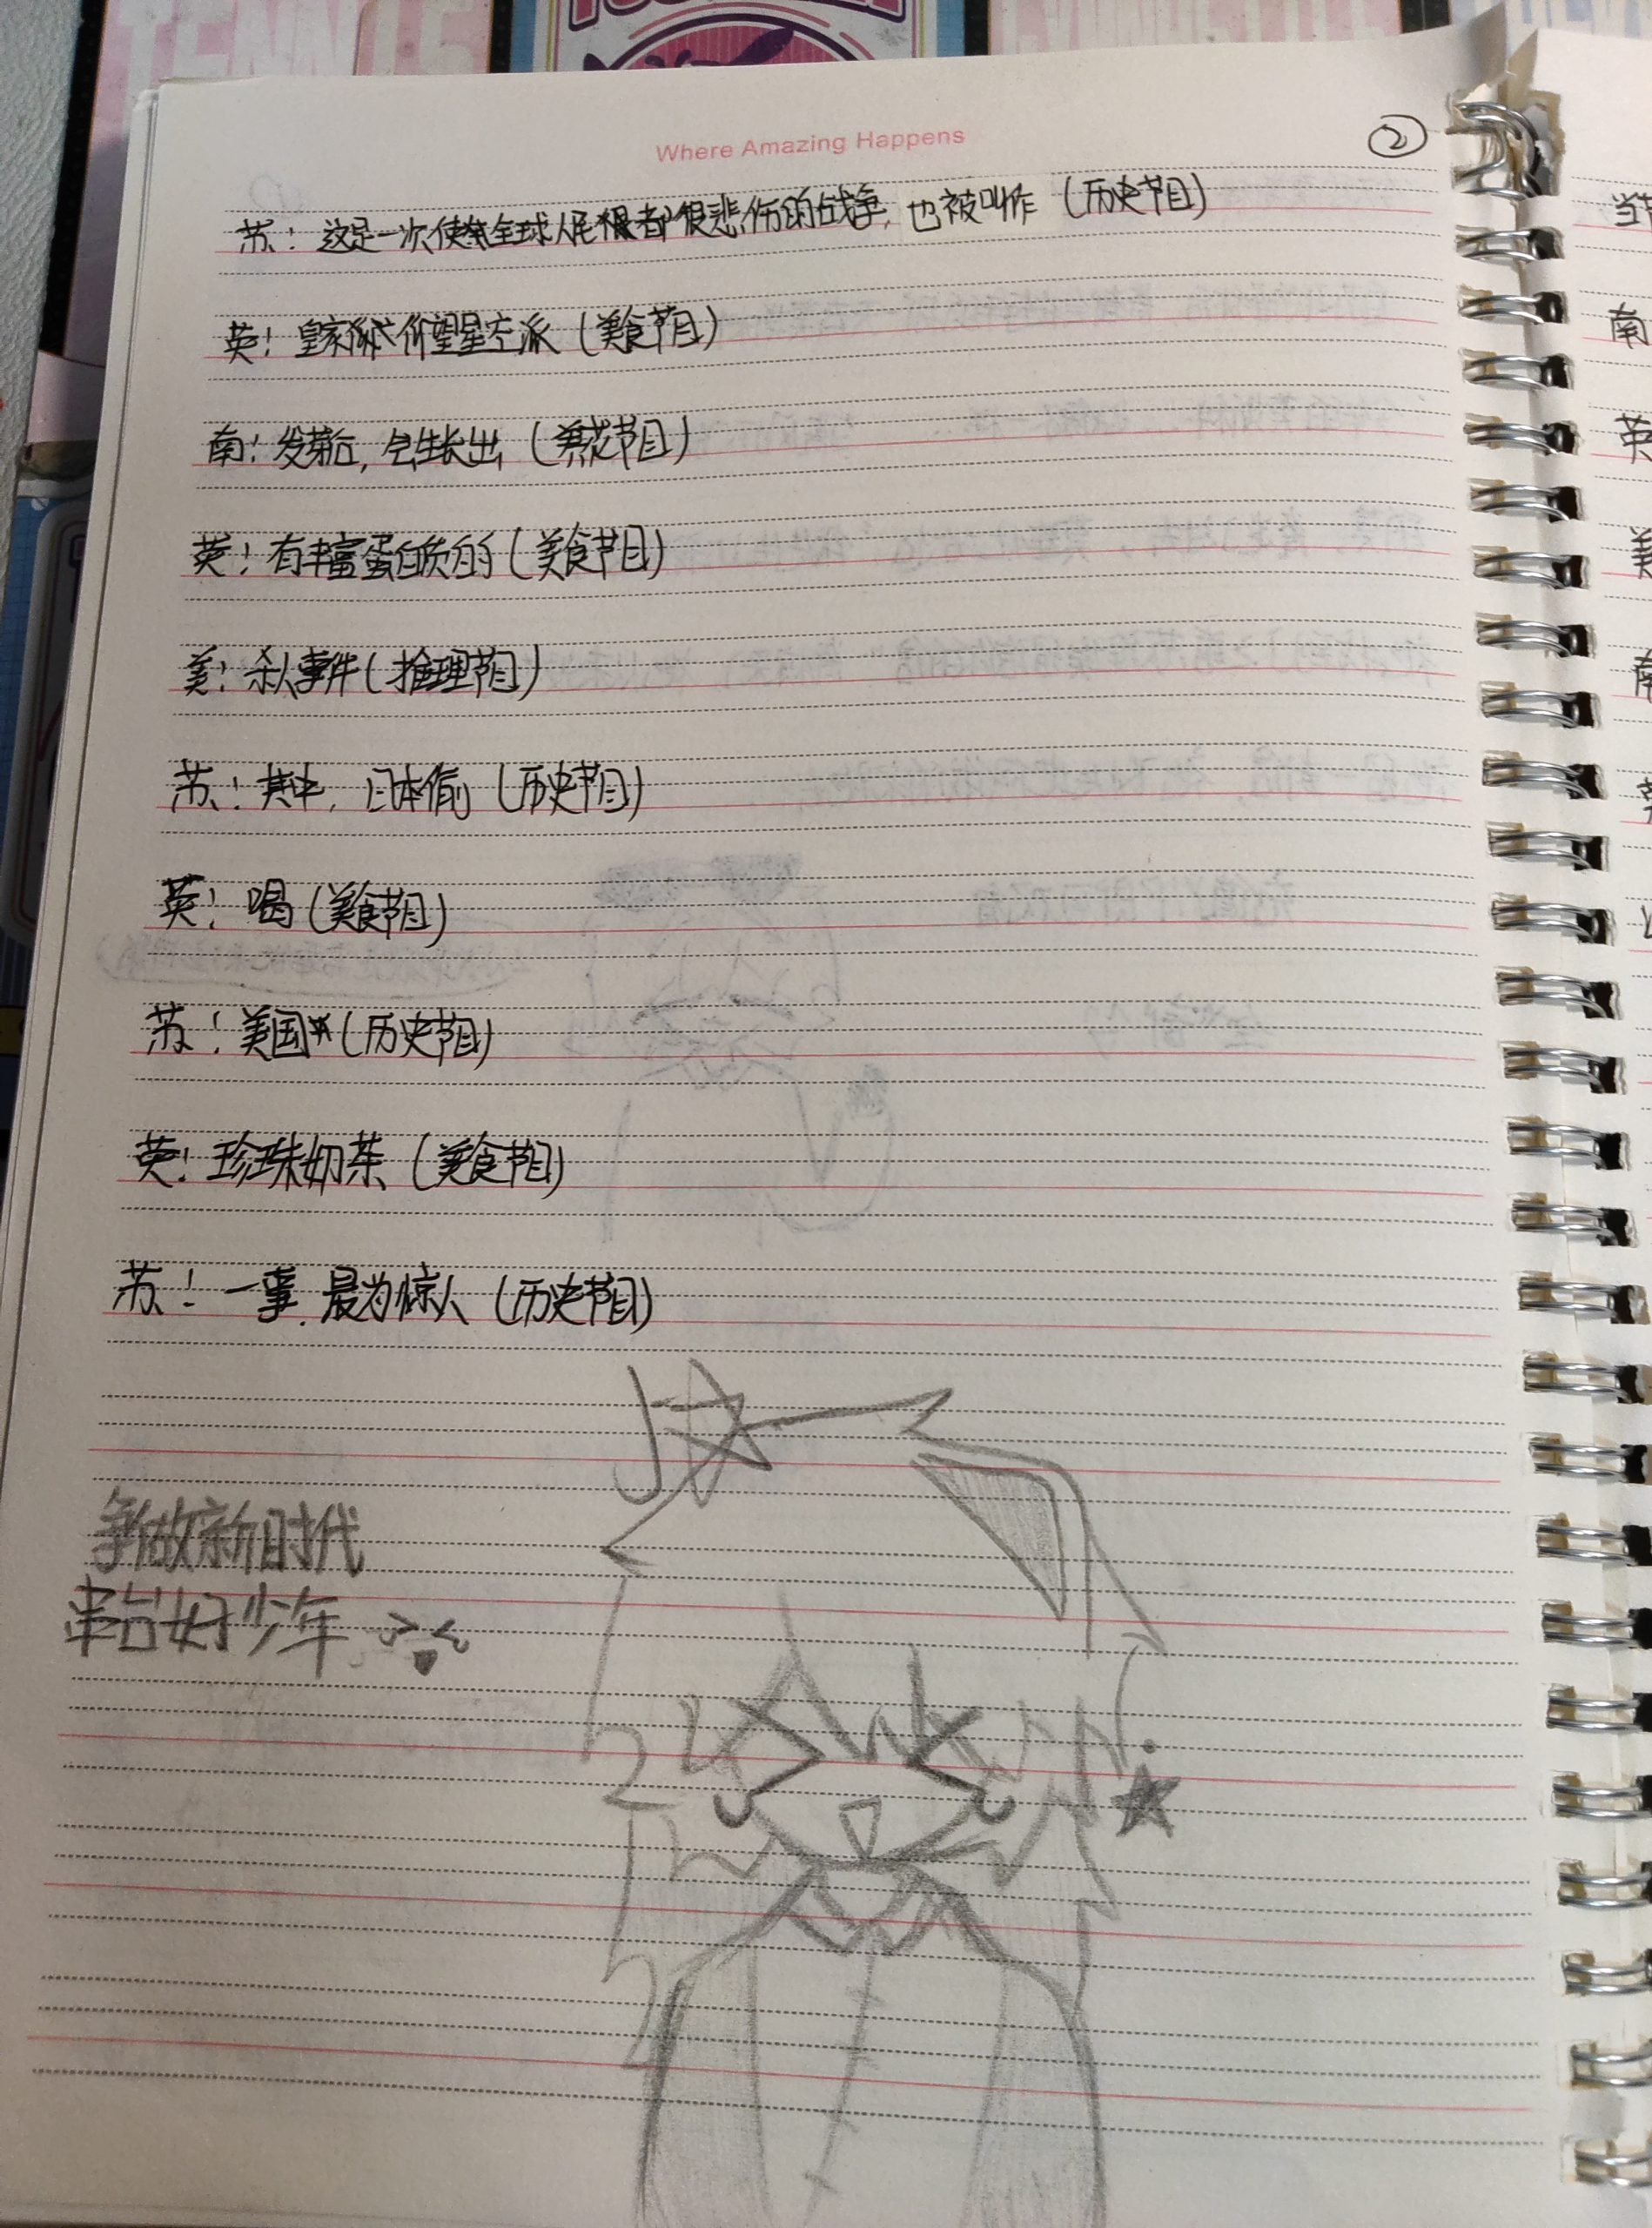 TENNIS
Where Amazing Happens
②
苏：这是一次使全球人民都很悲伤的战争，也被叫作（历史节目）
英：皇家 仰望星空派（美食节目）
南：发芽后，会生长出（养花节目）
英：有丰富蛋白质的（美食节目）
美：杀人事件（推理节目）
苏：其中，日本偷（历史节目）
英：喝（美食节目）
苏：美国（历史节目）
英：珍珠奶茶（美食节目）
苏：一事，最为惊人（历史节目）
争做新时代
串台好少年
南
英
美
南
英